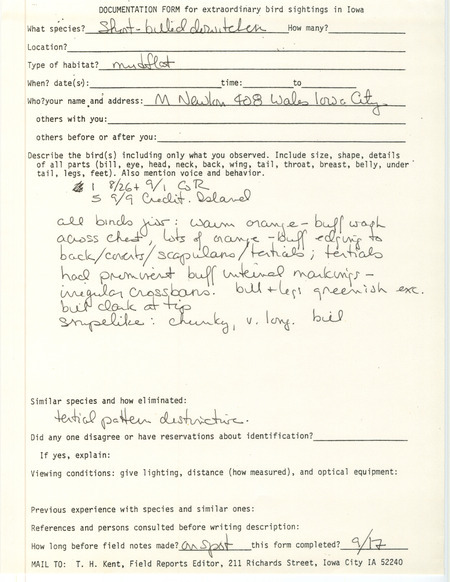 DOCUMENTATION FORM for extraordinary bird sightings in Iowa
What species? Short-billed dowitcher How many?
Location?
Type of habitat? mudflat
When? date(s): time: to
Who?your name and address: M Newlon 408 Wales Iowa City
others with you:
others before or after you:
Describe the bird(s) including only what you observed. Include size, shape, details
of all parts (bill, eye, head, neck, back, wing, tail, throat, breast, belly, under
tail, legs, feet). Also mention voice and behavior.
1 8/26 + 9/1 C R
5 9/9 Credit. Island
all birds juv: warm orange-buff wash
across chest, lots of orange-buff edging to
back/coverts/scapulars/tertials; tertials
had prominent buff internal markings -
irregular crossbars. bill + legs greenish exc.
bill dark at tip
snipelike: chunky, v. long. bill
Similar species and how eliminated:
tertial pattern distinctive.
Did any one disagree or have reservations about identification?
If yes, explain:
Viewing conditions: give lighting, distance (how measured), and optical equipment:
Previous experience with species and similar ones:
References and persons consulted before writing description:
How long before field notes made? on spot this form completed? 9/17
MAIL TO: T. H. Kent, Field Reports Editor, 211 Richards Street, Iowa City IA 52240